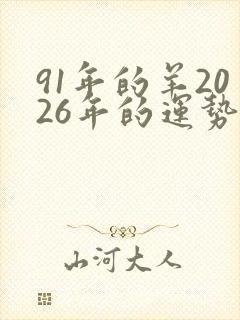 91年的羊20
26年的運势
山河大人